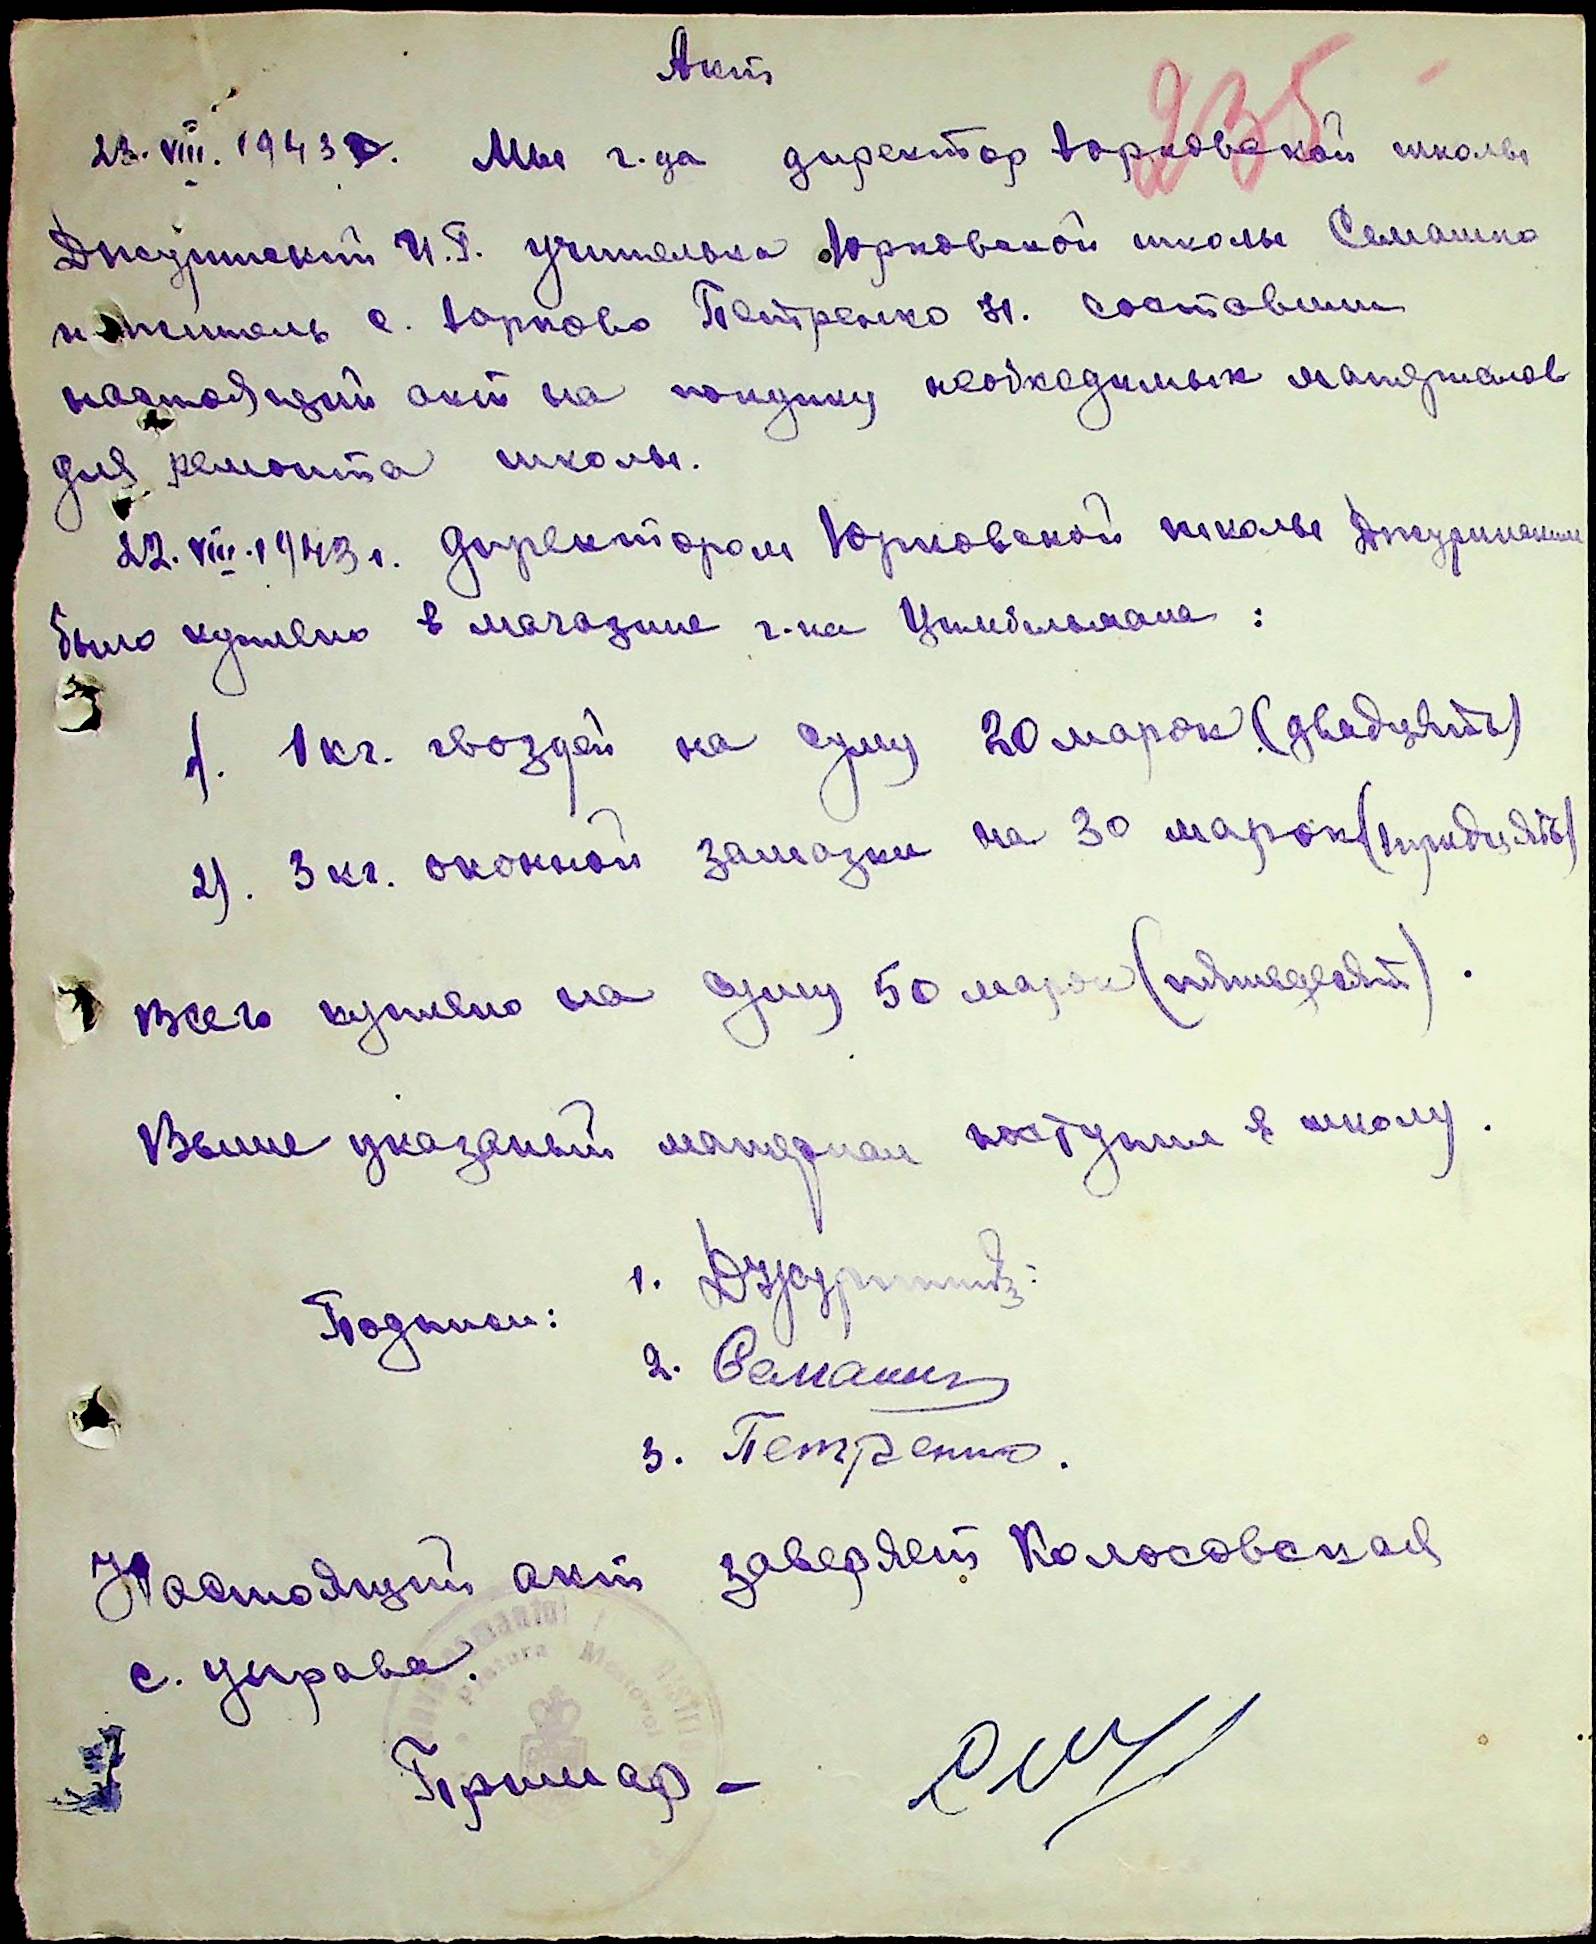 Акт
235
23.VIII.1943г. Мы г.да директор Юрковской школы
Джуринский И.Г. учителька Юрковской школы Семашко
и житель с. Юрково Петренко Н. составили
настоящий акт на покупку необходимых материалов
для ремонта школы.
22.VIII.1943г. директором Юрковской школы Джуринским
было куплено в магазине г-на Цимбильмана:
1). 1 кг. гвоздей на суму 20 марок (двадцять)
2). 3 кг. оконной замазки на 30 марок (тридцять)
Всего куплено на суму 50 марок (пятедесят).
Выше указаный материал поступил в школу.
Подписи:
1. Джуринский
2. Семашко
3. Петренко.
Настоящий акт заверяет Колосовская
с. управа.
Примар –